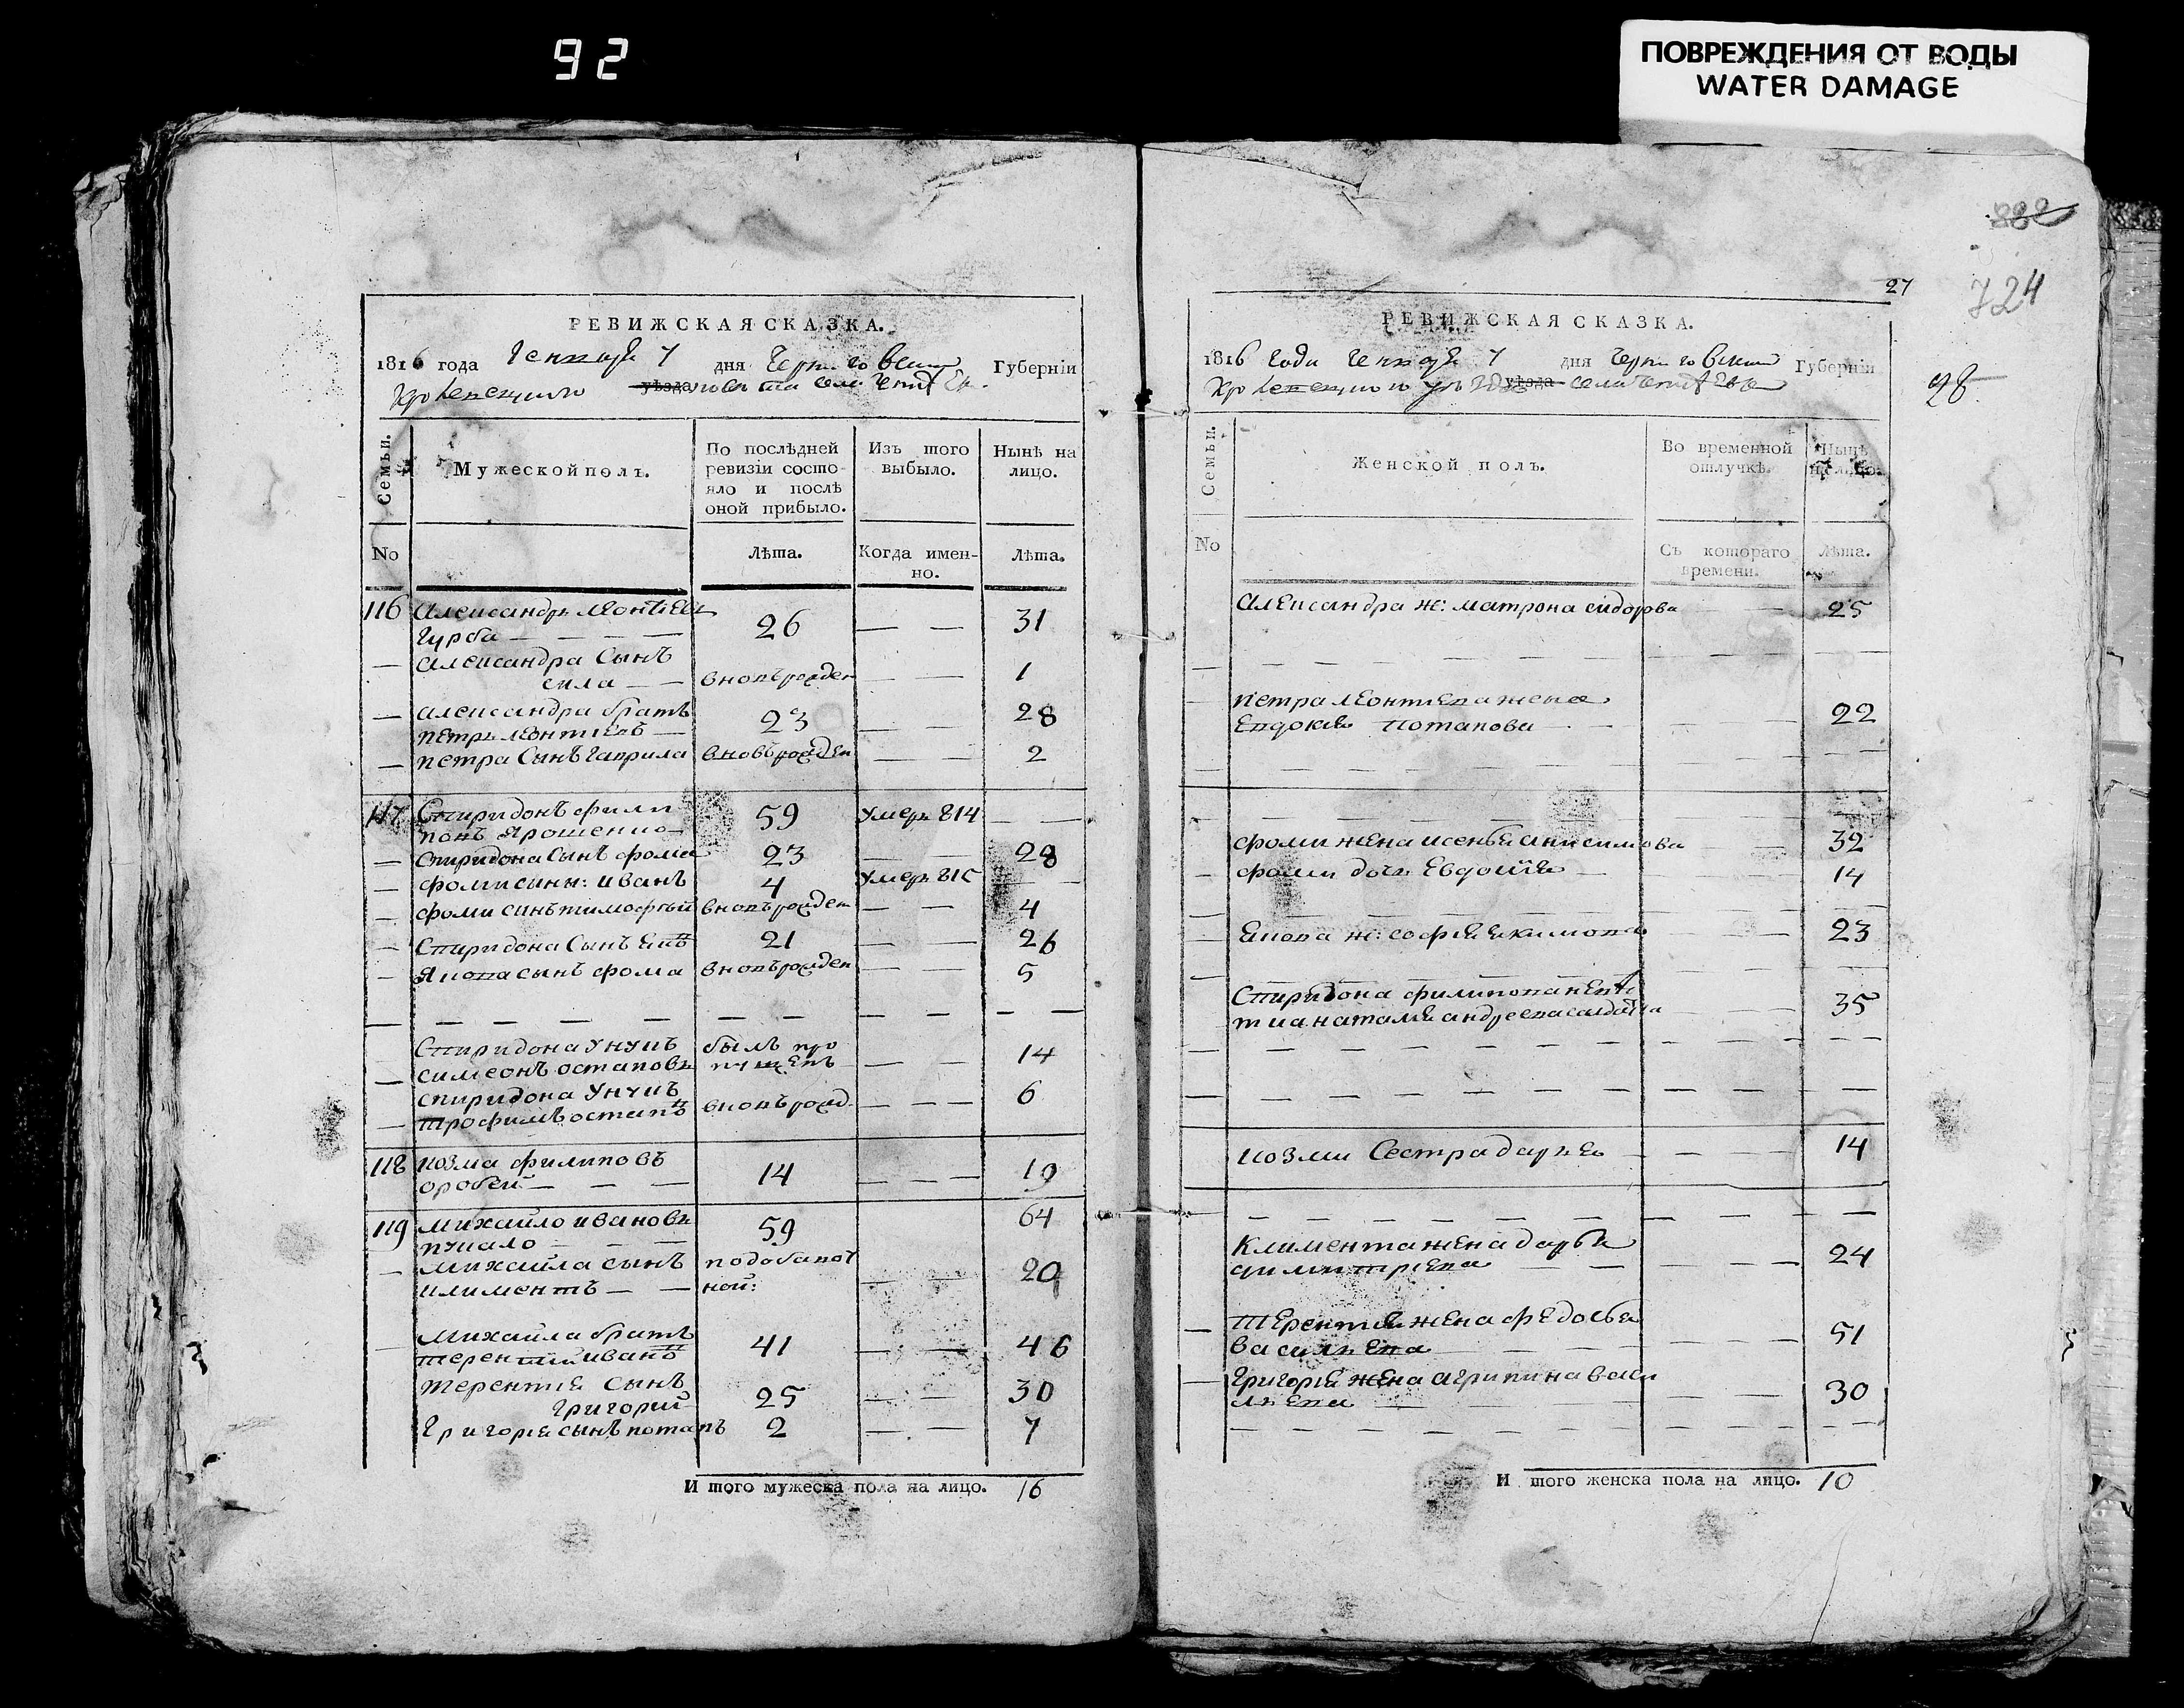 92
ПОВРЕЖДЕНИЯ ОТ ВОДЫ
WATER DAMAGE
РЕВИЖСКАЯ СКАЗКА.
1816 года 7 дня Губерніи
уѣзда
Семьи.
Мужеской полъ.
По послѣдней ревизіи состо-
яло и послѣ
оной прибыло.
Изъ того
выбыло.
Нынѣ на
лицо.
No
Лѣта.
Когда имен-
но.
Лѣта.
116 Александръ Леонтіевъ
Гурба 26 31
Александра Сынъ
сила вновърожден 1
Александра братъ
петръ леонтіевъ 23 28
петра Сынъ гаврила вновърожден 2
117 Спиридонъ фили
повъ Ярошенко 59 Умеръ 814
спиридона Сынъ фома 23 28
фоми сины: иванъ 4 Умеръ 815
фоми синъ тимофѣй вновърожден 4
Спиридона Сынъ 21 26
Якова сынъ фома вновърожден 5
Спиридона Унукъ былъ про
симеонъ остаповъ пущенъ 14
спиридона Унукъ
трофимъ остапъ вновърожд 6
118 козма филиповъ
оробей 14 19
119 михайло ивановъ 64
59
михайла сынъ
климентъ 29
Михайла братъ
терентий иванъ 41 46
терентія сынъ
григорий 25 30
Григорія сынъ потапъ 2 7
И того мужеска пола на лицо. 16
27
724
98
РЕВИЖСКАЯ СКАЗКА.
1816 года 7 дня Губерніи
уѣзда
Семьи.
Женской полъ.
Во временной
отлучкѣ.
Нынѣ
на лицо.
No
Съ котораго
времени.
Лѣта.
Александра ж: матрона сидорова 25
петра леонтіева жена
Евдокія потапова 22
фоми жена ксенья анисимова 32
фоми дочь Евдокія 14
Якова ж: софія екимова 23
Спиридона филипова невѣс
тка наталия андреева салдатка 35
козми Сестра дарья 14
Климента жена дарья
димитріева 24
терентія жена федосья
васильева 51
Григорія жена агрипина васи
льева 30
И того женска пола на лицо. 10